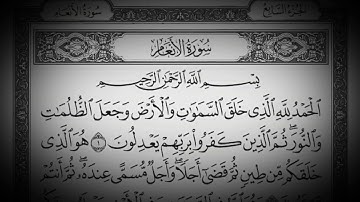 سُورَةُ الأَنْعَامِ الجُزْءُ السَّابِعُ
سُورَةُ الأَنْعَامِ
بِسْمِ ٱللَّهِ ٱلرَّحْمَٰنِ ٱلرَّحِيمِ
ٱلْحَمْدُ لِلَّهِ ٱلَّذِى خَلَقَ ٱلسَّمَٰوَٰتِ وَٱلْأَرْضَ وَجَعَلَ ٱلظُّلُمَٰتِ
وَٱلنُّورَ ثُمَّ ٱلَّذِينَ كَفَرُوا۟ بِرَبِّهِمْ يَعْدِلُونَ ١ هُوَ ٱلَّذِى
خَلَقَكُم مِّن طِينٍ ثُمَّ قَضَىٰٓ أَجَلًا وَأَجَلٌ مُّسَمًّى عِندَهُۥ ثُمَّ أَنتُمْ